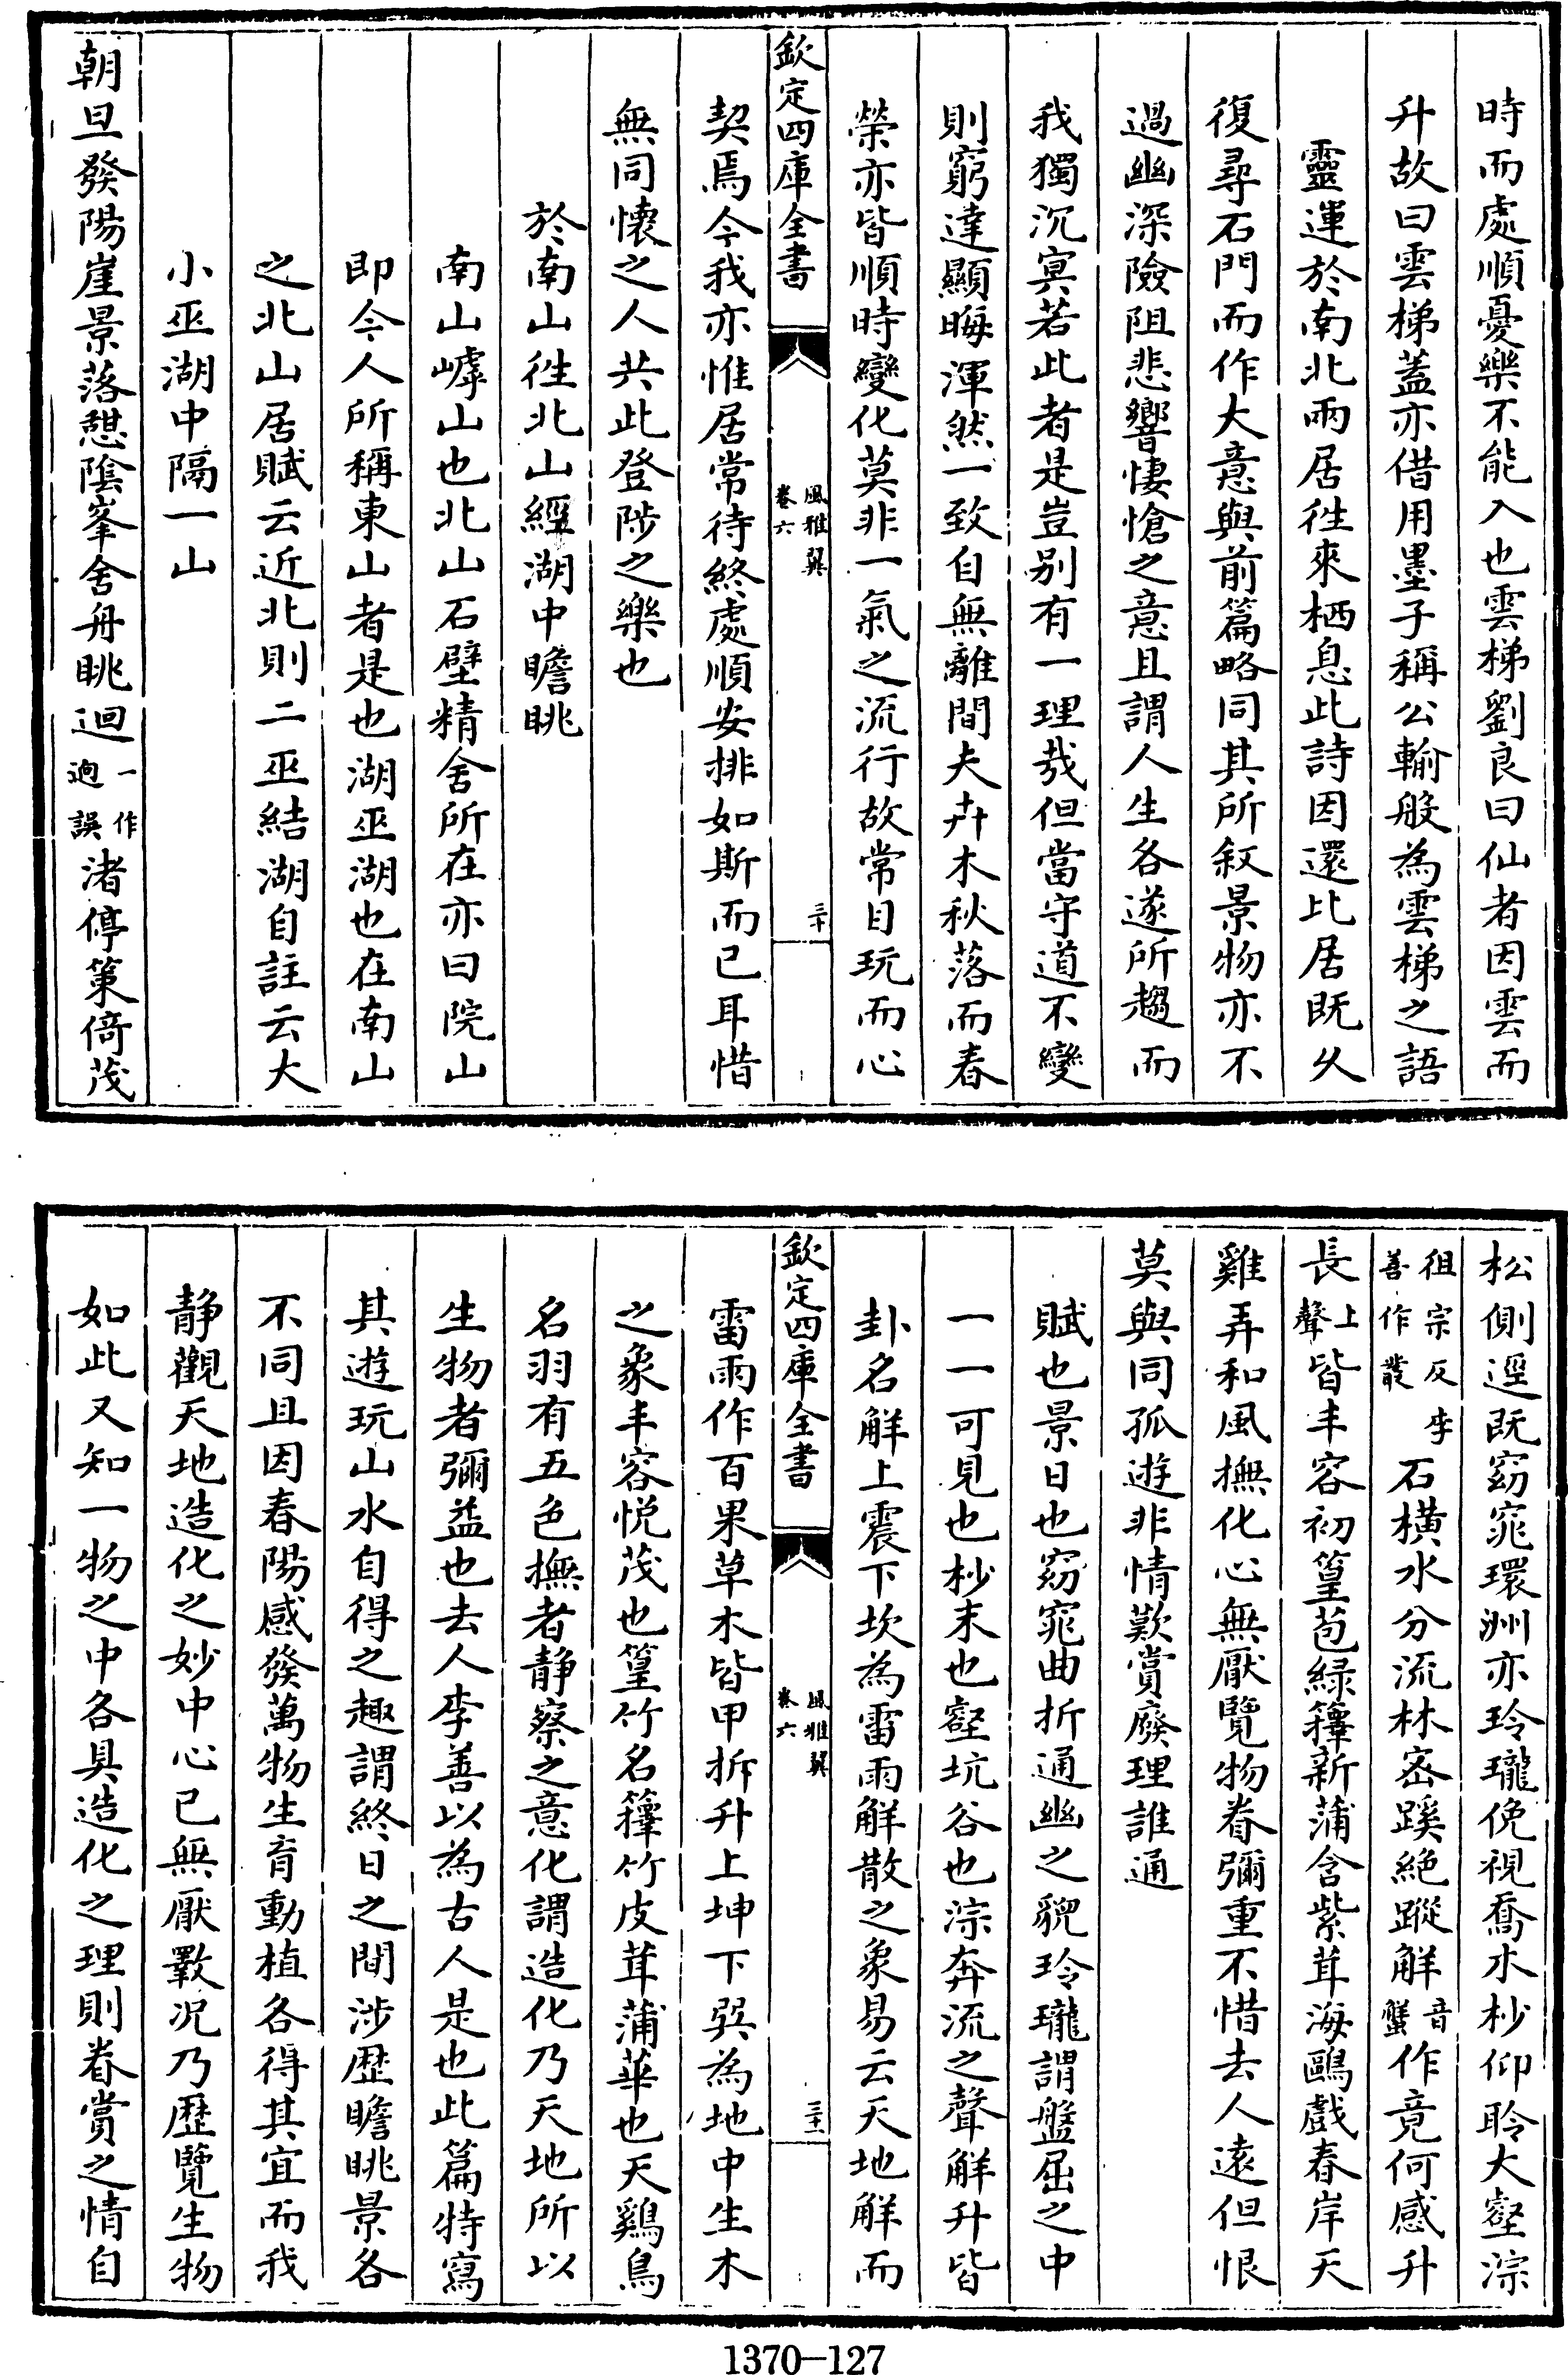 時而處順憂樂不能入也雲梯劉良曰仙者因雲而
升故曰雲梯蓋亦借用墨子稱公輸般為雲梯之語
靈運於南北兩居徃來栖息此詩因還比居既久
復尋石門而作大意與前篇略同其所叙景物亦不
過幽深險阻悲響悽愴之意且謂人生各遂所趨而
我獨沉冥若此者是豈别有一理㢤但當守道不變
則窮達顯晦渾然一致自無離間夫卉木秋落而春
榮亦皆順時變化莫非一氣之流行故常目玩而心
欽定四庫全書 風雅翼 卷六 三十
契焉今我亦惟居常待終處順安排如斯而已耳惜
無同懐之人共此登陟之樂也
於南山徃北山經湖中瞻眺
南山嶀山也北山石壁精舍所在亦曰院山
即今人所稱東山者是也湖巫湖也在南山
之北山居賦云近北則二巫結湖自註云大
小巫湖中隔一山
朝旦發陽崖景落憇陰峯舍舟眺迴一作逈誤渚停策倚茂
松側逕既窈窕環洲亦玲瓏俛視喬木杪仰聆大壑淙
徂宗反李善作叢石橫水分流林宻蹊絶蹤解音蟹作竟何感升
長上聲皆丰容初篁苞緑籜新蒲含紫茸海鷗戲春岸天
雞弄和風撫化心無厭覽物眷彌重不惜去人逺但恨
莫與同孤遊非情歎賞廢理誰通
賦也景日也窈窕曲折通幽之貌玲瓏謂盤屈之中
一一可見也杪末也壑坑谷也淙奔流之聲解升皆
卦名解上震下坎為雷雨解散之象易云天地解而
欽定四庫全書 風雅翼 卷六 三十一
雷雨作百果草木皆甲拆升上坤下巽為地中生木
之象丰容悦茂也篁竹名籜竹皮茸蒲華也天鷄鳥
名羽有五色撫者静察之意化謂造化乃天地所以
生物者彌益也去人李善以為古人是也此篇特寫
其遊玩山水自得之趣謂終日之間涉歴瞻眺景各
不同且因春陽感發萬物生育動植各得其宜而我
静觀天地造化之妙中心已無厭斁况乃歴覽生物
如此又知一物之中各具造化之理則眷賞之情自
1370—127